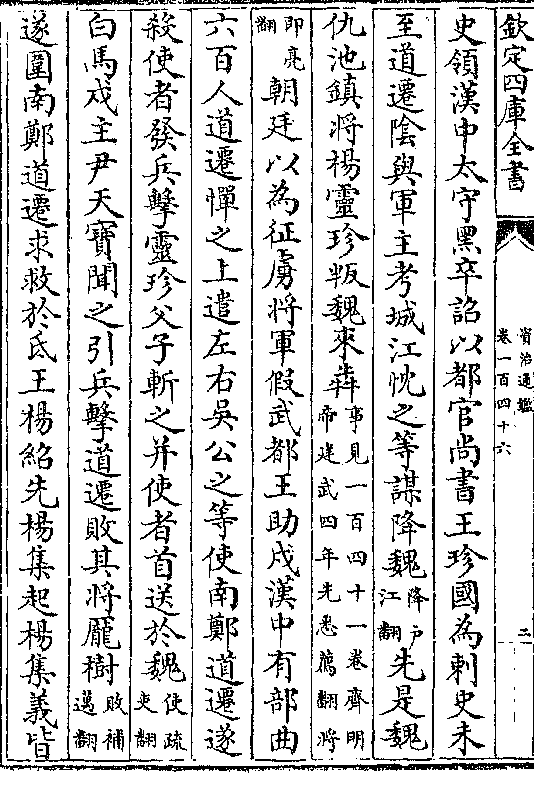 欽定四庫全書
資治通鑑
卷一百四十六
二
史領漢中太守黑卒詔以都官尚書王珍國為刺史未
至道遷陰與軍主考城江忱之等謀降魏降户江翻先是魏
仇池鎮將楊靈珍叛魏來奔事見一百四十一卷齊明帝建武四年先悉薦翻將
即亮翻朝廷以為征虜將軍假武都王助戍漢中有部曲
六百人道遷憚之上遣左右吳公之等使南鄭道遷遂
殺使者發兵擊靈珍父子斬之并使者首送於魏使疏吏翻
白馬戍主尹天寶聞之引兵擊道遷敗其將龎樹敗補邁翻
遂圍南鄭道遷求救於氐王楊紹先楊集起楊集義皆